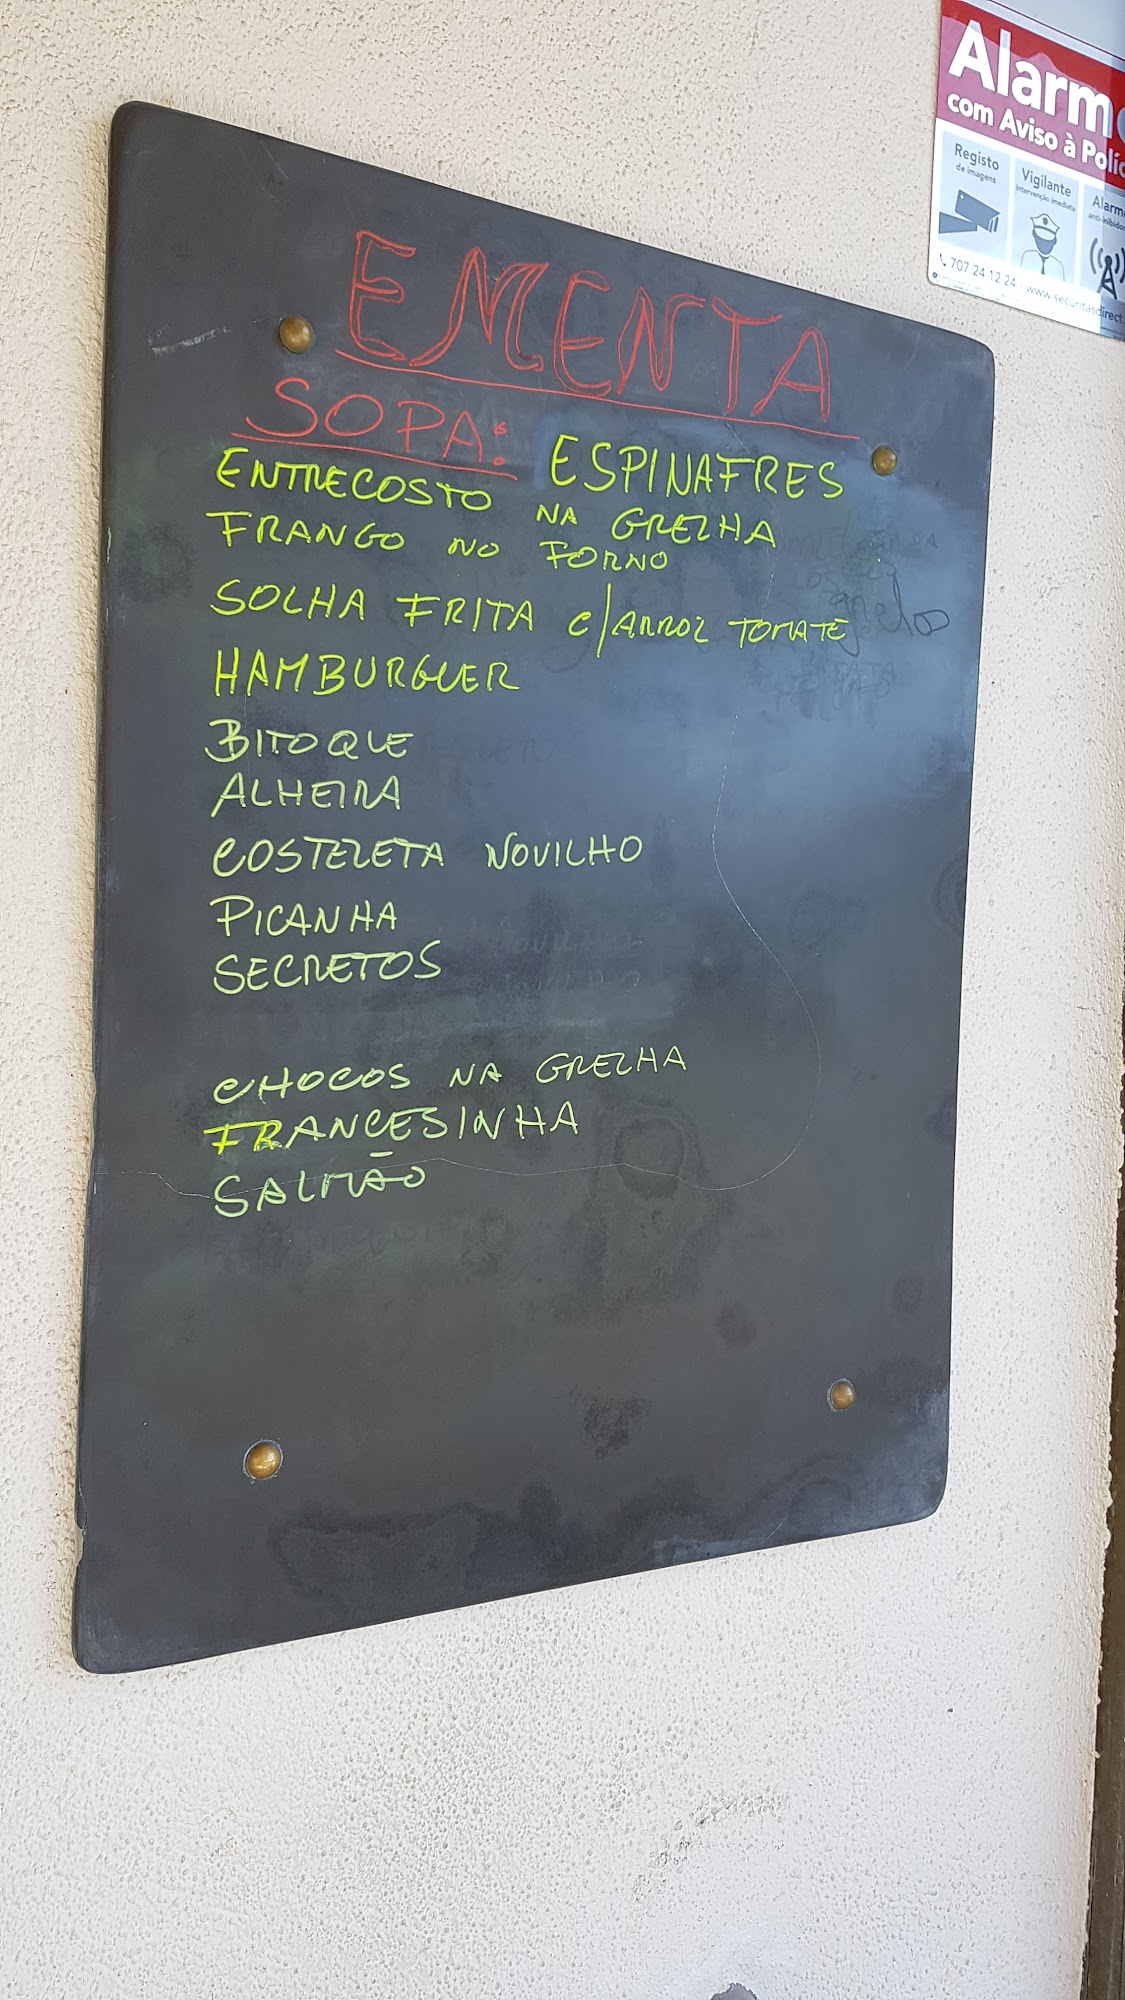 EMENTA
SOPA: ESPINAFRES
ENTRECOSTO NA GRELHA
FRANGO NO FORNO
SOLHA FRITA C/ARROZ TOMATE
HAMBURGUER
BITOQUE
ALHEIRA
COSTELETA NOVILHO
PICANHA
SECRETOS
CHOCOS NA GRELHA
FRANCESINHA
SALMÃO
Alarme
com Aviso à Políc
Registo
de imagens
Vigilante
intervenção imediata
Alarm
707 24 12 24
www.securitasdirect.